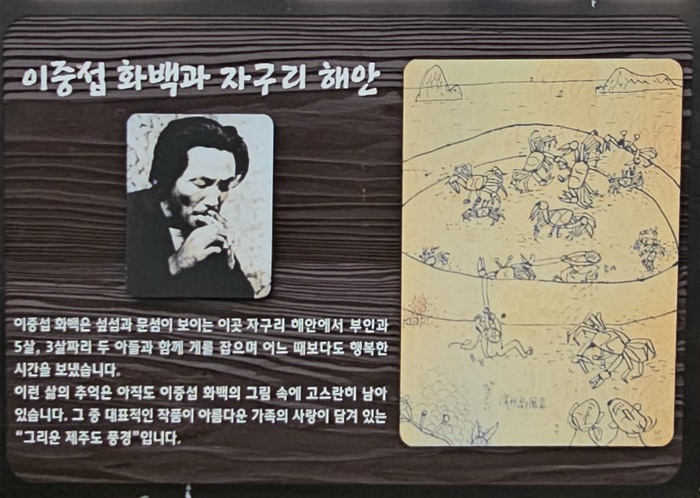 이중섭 화백과 자구리 해안
이중섭 화백은 섶섬과 문섬이 보이는 이곳 자구리 해안에서 부인과
5살, 3살짜리 두 아들과 함께 게를 잡으며 어느 때보다도 행복한
시간을 보냈습니다.
이런 삶의 추억은 아직도 이중섭 화백의 그림 속에 고스란히 남아
있습니다. 그 중 대표적인 작품이 아름다운 가족의 사랑이 담겨 있는
“그리운 제주도 풍경”입니다.